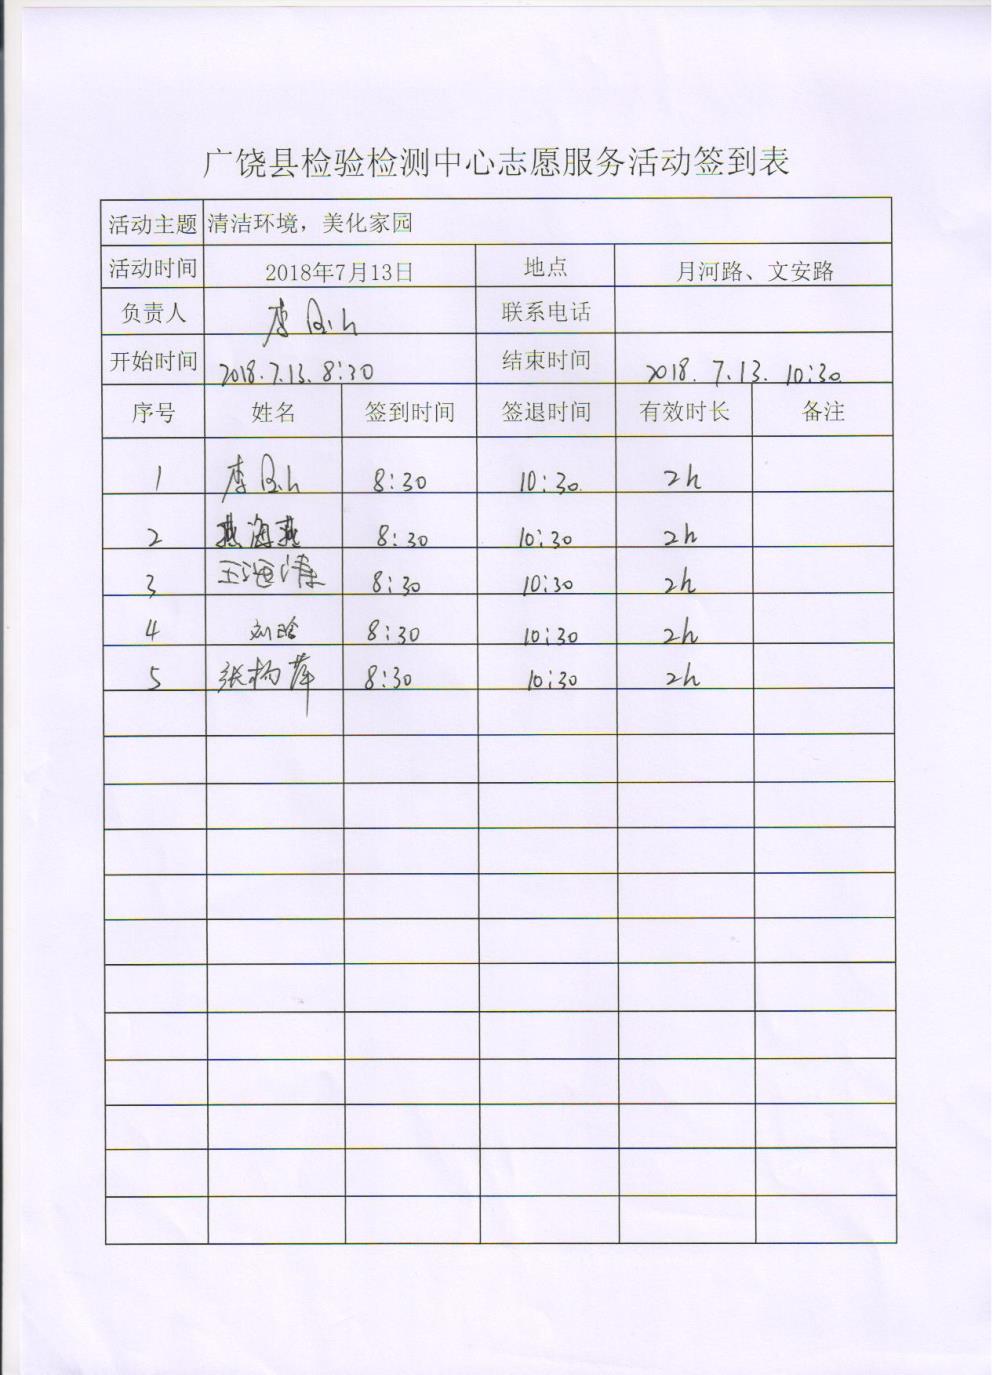 广饶县检验检测中心志愿服务活动签到表
活动主题 清洁环境，美化家园
活动时间 2018年7月13日 地点 月河路、文安路
负责人 李 联系电话
开始时间 2018.7.13. 8:30 结束时间 2018. 7.13. 10:30
序号 姓名 签到时间 签退时间 有效时长 备注
1 李 8:30 10:30 2h
2 燕海燕 8:30 10:30 2h
3 王海涛 8:30 10:30 2h
4 刘晗 8:30 10:30 2h
5 张杨萍 8:30 10:30 2h